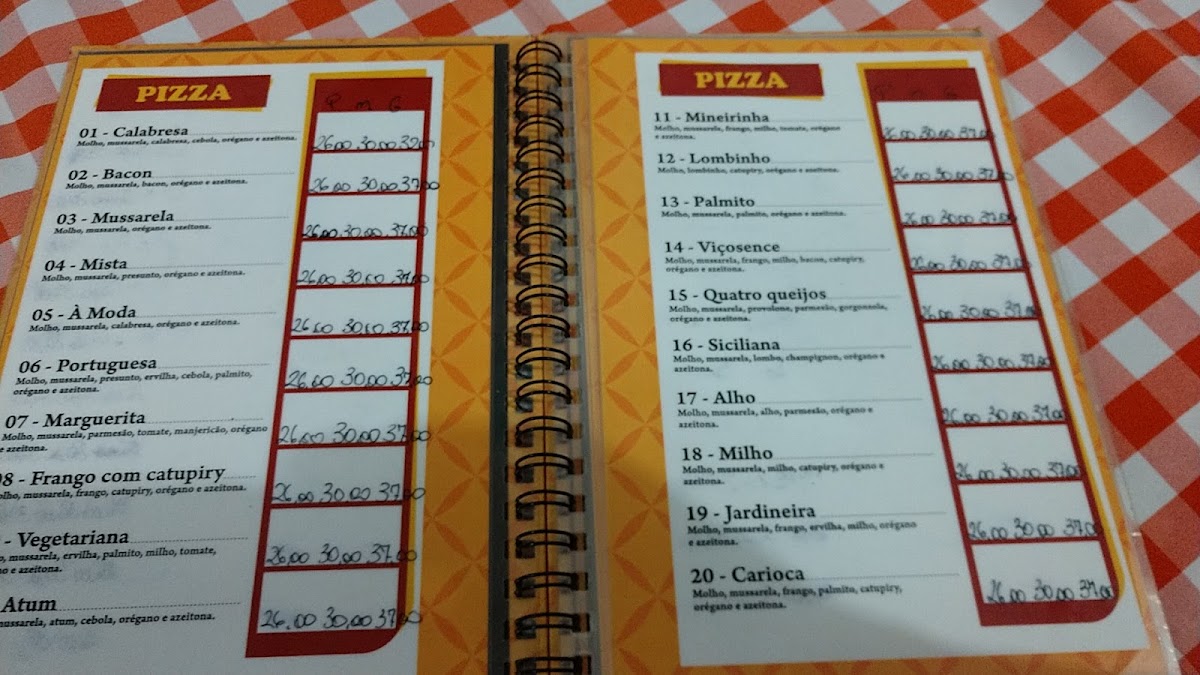 PIZZA
P M G
01 - Calabresa
Molho, mussarela, calabresa, cebola, orégano e azeitona.
26,00 30,00 37,00
02 - Bacon
Molho, mussarela, bacon, orégano e azeitona.
26,00 30,00 37,00
03 - Mussarela
Molho, mussarela, orégano e azeitona.
26,00 30,00 37,00
04 - Mista
Molho, mussarela, presunto, orégano e azeitona.
26,00 30,00 37,00
05 - À Moda
Molho, mussarela, calabresa, orégano e azeitona.
26,00 30,00 37,00
06 - Portuguesa
Molho, mussarela, presunto, ervilha, cebola, palmito,
orégano e azeitona.
26,00 30,00 37,00
07 - Marguerita
Molho, mussarela, parmesão, tomate, manjericão, orégano
e azeitona.
26,00 30,00 37,00
08 - Frango com catupiry
olho, mussarela, frango, catupiry, orégano e azeitona.
26,00 30,00 37,00
- Vegetariana
, mussarela, ervilha, palmito, milho, tomate,
o e azeitona.
26,00 30,00 37,00
Atum
mussarela, atum, cebola, orégano e azeitona.
26,00 30,00 37,00
PIZZA
P M G
11 - Mineirinha
Molho, mussarela, frango, milho, tomate, orégano
e azeitona.
26,00 30,00 37,00
12 - Lombinho
Molho, lombinho, catupiry, orégano e azeitona.
26,00 30,00 37,00
13 - Palmito
Molho, mussarela, palmito, orégano e azeitona.
26,00 30,00 37,00
14 - Viçosence
Molho, mussarela, frango, milho, bacon, catupiry,
orégano e azeitona.
26,00 30,00 37,00
15 - Quatro queijos
Molho, mussarela, provolone, parmesão, gorgonzola,
orégano e azeitona.
26,00 30,00 37,00
16 - Siciliana
Molho, mussarela, lombo, champignon, orégano e
azeitona.
26,00 30,00 37,00
17 - Alho
Molho, mussarela, alho, parmesão, orégano e
azeitona.
26,00 30,00 37,00
18 - Milho
Molho, mussarela, milho, catupiry, orégano e
azeitona.
26,00 30,00 37,00
19 - Jardineira
Molho, mussarela, frango, ervilha, milho, orégano
e azeitona.
26,00 30,00 37,00
20 - Carioca
Molho, mussarela, frango, palmito, catupiry,
orégano e azeitona.
26,00 30,00 37,00